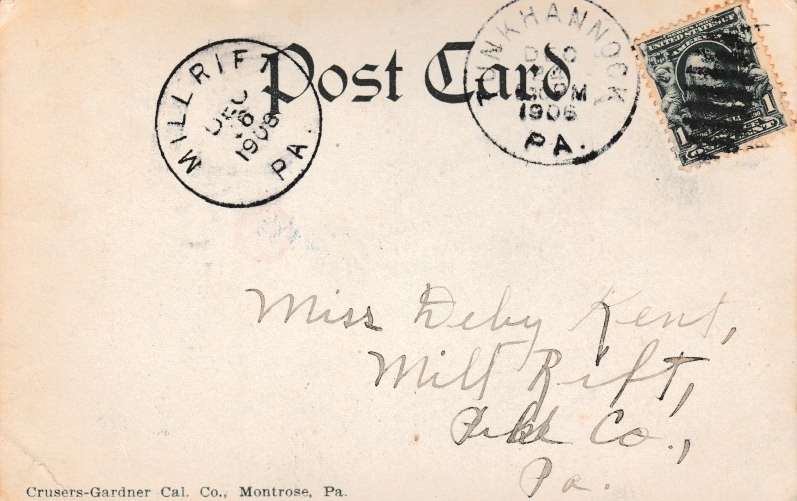 Post Card
MILLRIFT
DEC
1906
PA.
TUNKHANNOCK
DEC
1906
PA.
UNITED STATES OF
AMERICA
1 1
Miss Deby Kent,
Mill Rift,
Pike Co.,
Pa.
Crusers-Gardner Cal. Co., Montrose, Pa.